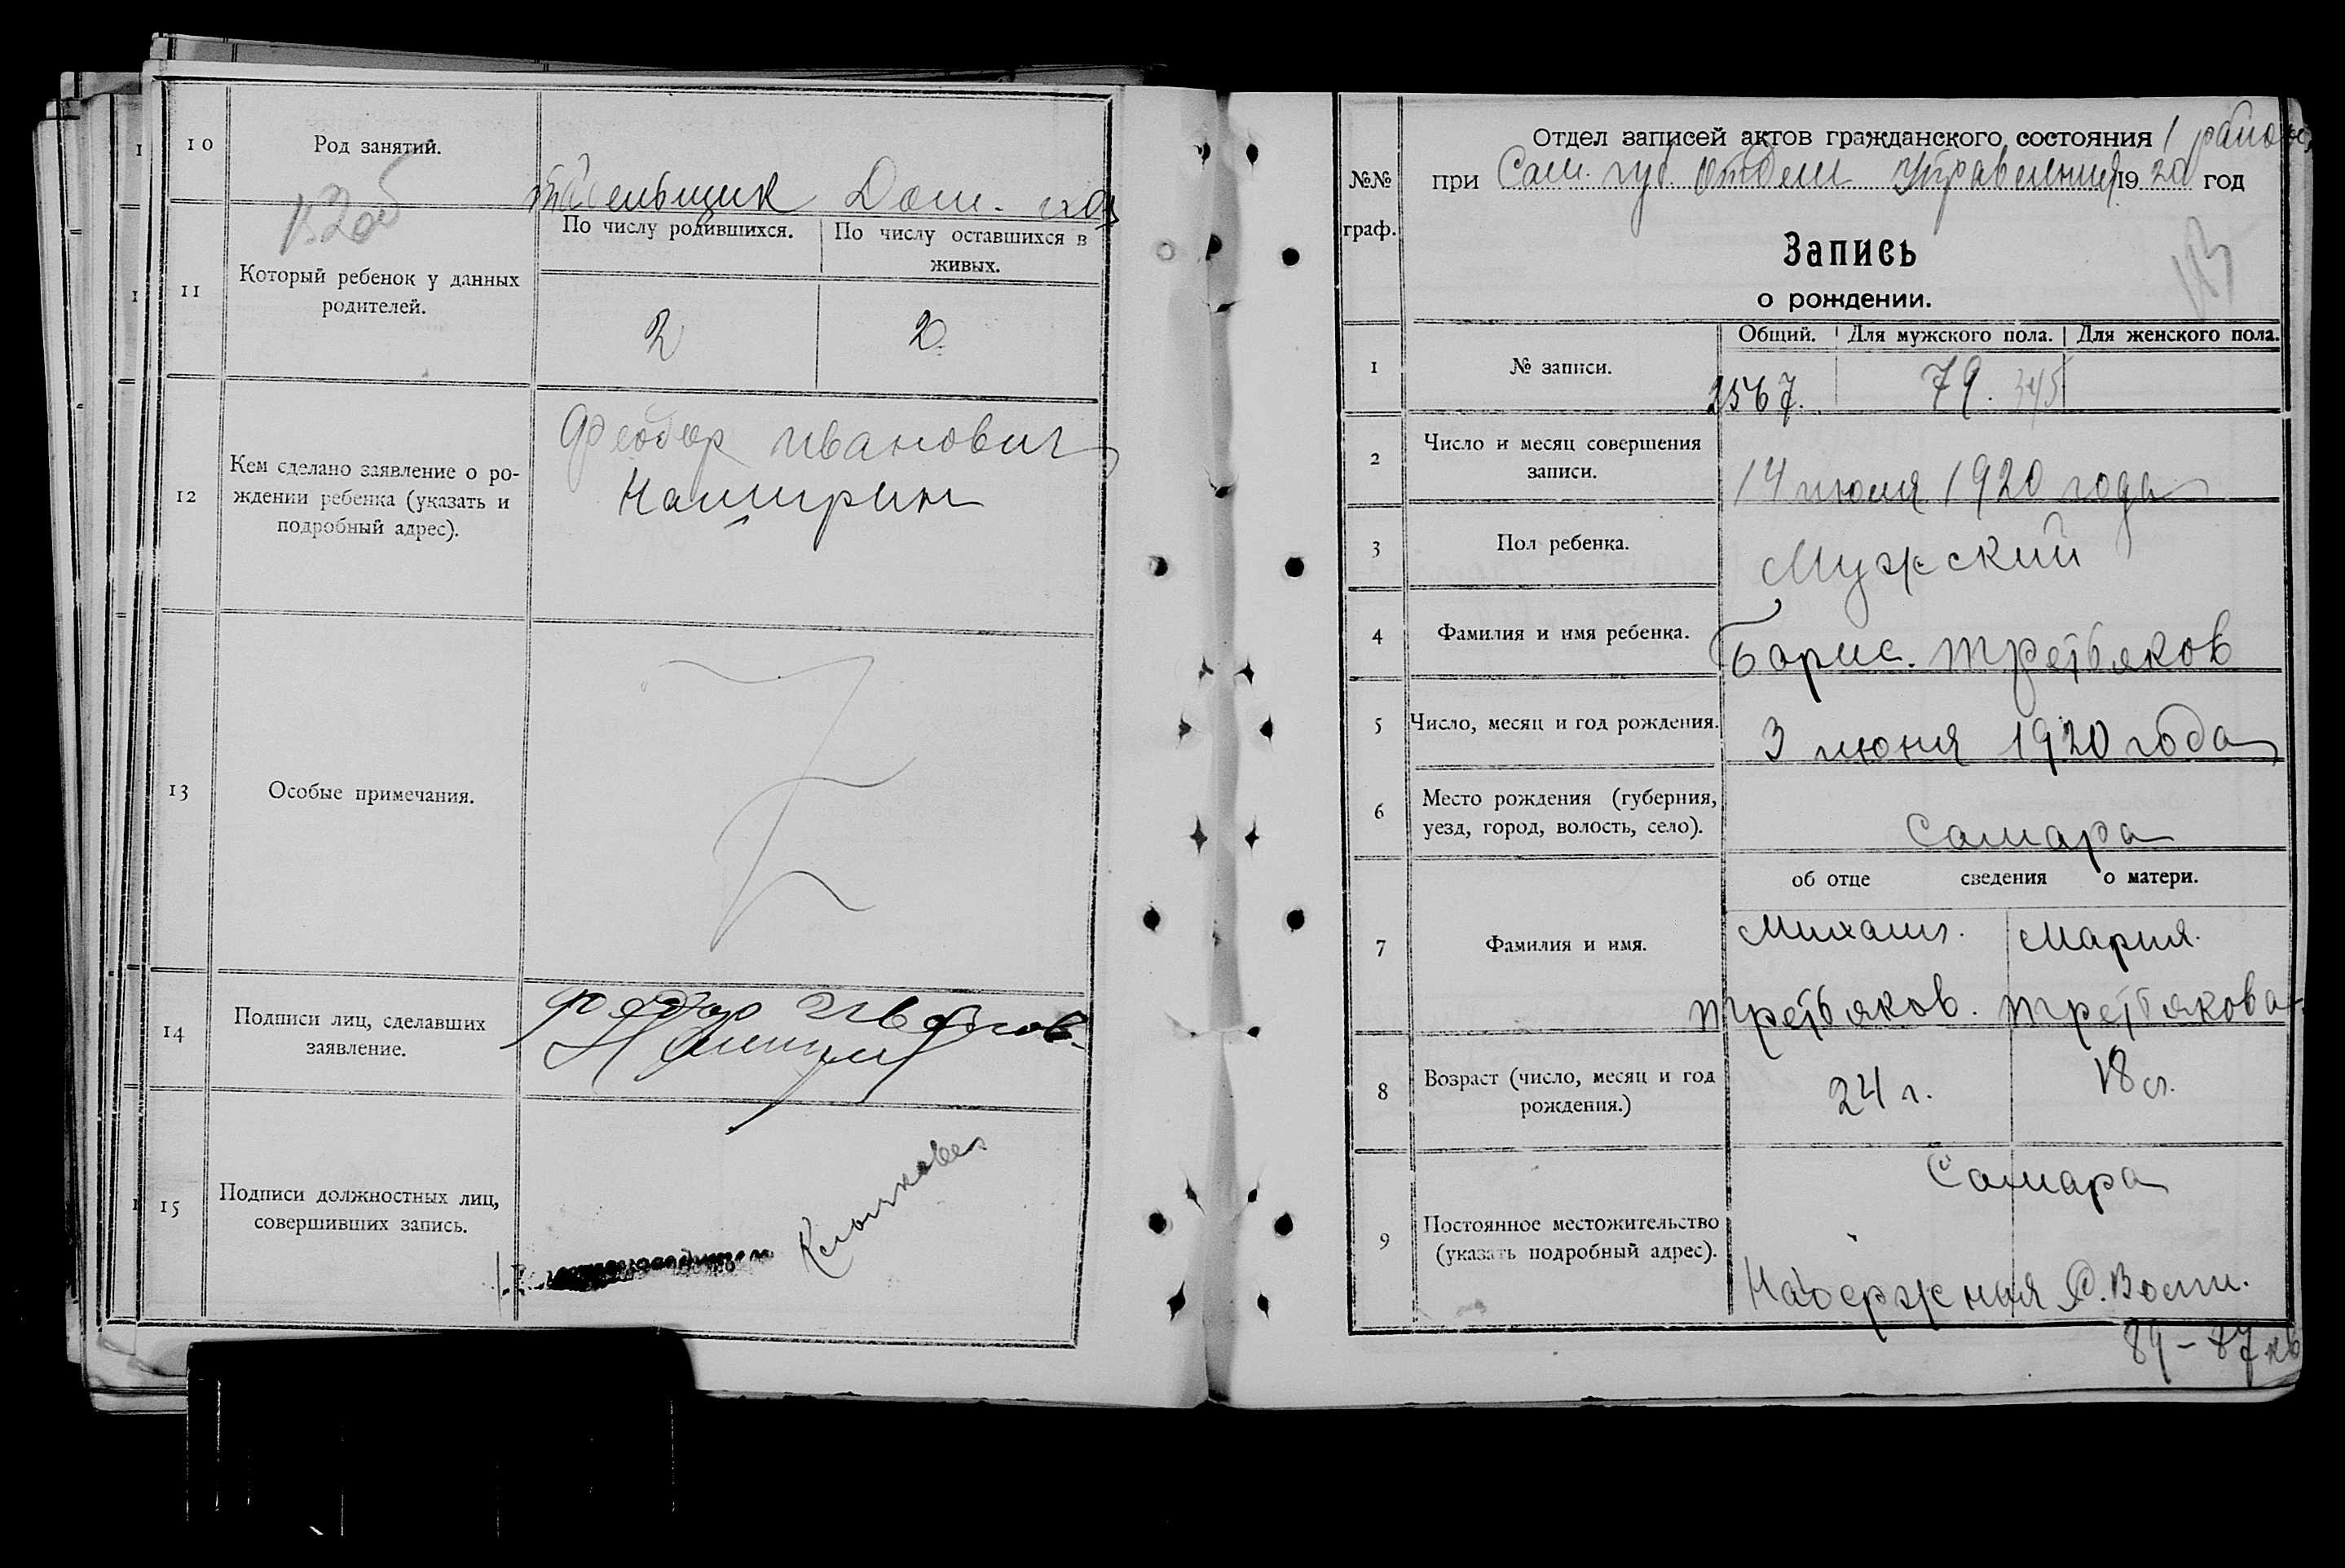 10
Род занятий.
Дом. хоз
11
Который ребенок у данных
родителей.
По числу родившихся.
По числу оставшихся в
живых.
2
2
12
Кем сделано заявление о ро-
ждении ребенка (указать и
подробный адрес).
Феодор Иванович
13
Особые примечания.
14
Подписи лиц, сделавших
заявление.
15
Подписи должностных лиц,
совершивших запись.
№№
граф.
Отдел записей актов гражданского состояния 1 района
при Сам. губ Отделе Управления 1920 год
Запись
о рождении.
1
№ записи.
Общий.
Для мужского пола.
Для женского пола.
2567.
79. 345
2
Число и месяц совершения
записи.
14 июля 1920 года
3
Пол ребенка.
Мужский
4
Фамилия и имя ребенка.
Борис. Третьяков
5
Число, месяц и год рождения.
3 июня 1920 года
6
Место рождения (губерния,
уезд, город, волость, село).
Самара
об отце сведения о матери.
7
Фамилия и имя.
Михаил.
Третьяков.
Мария.
Третьякова.
8
Возраст (число, месяц и год
рождения.)
24 г.
18 л.
9
Постоянное местожительство
(указать подробный адрес).
Самара
Набержная Р. Волги.
89-87 кв